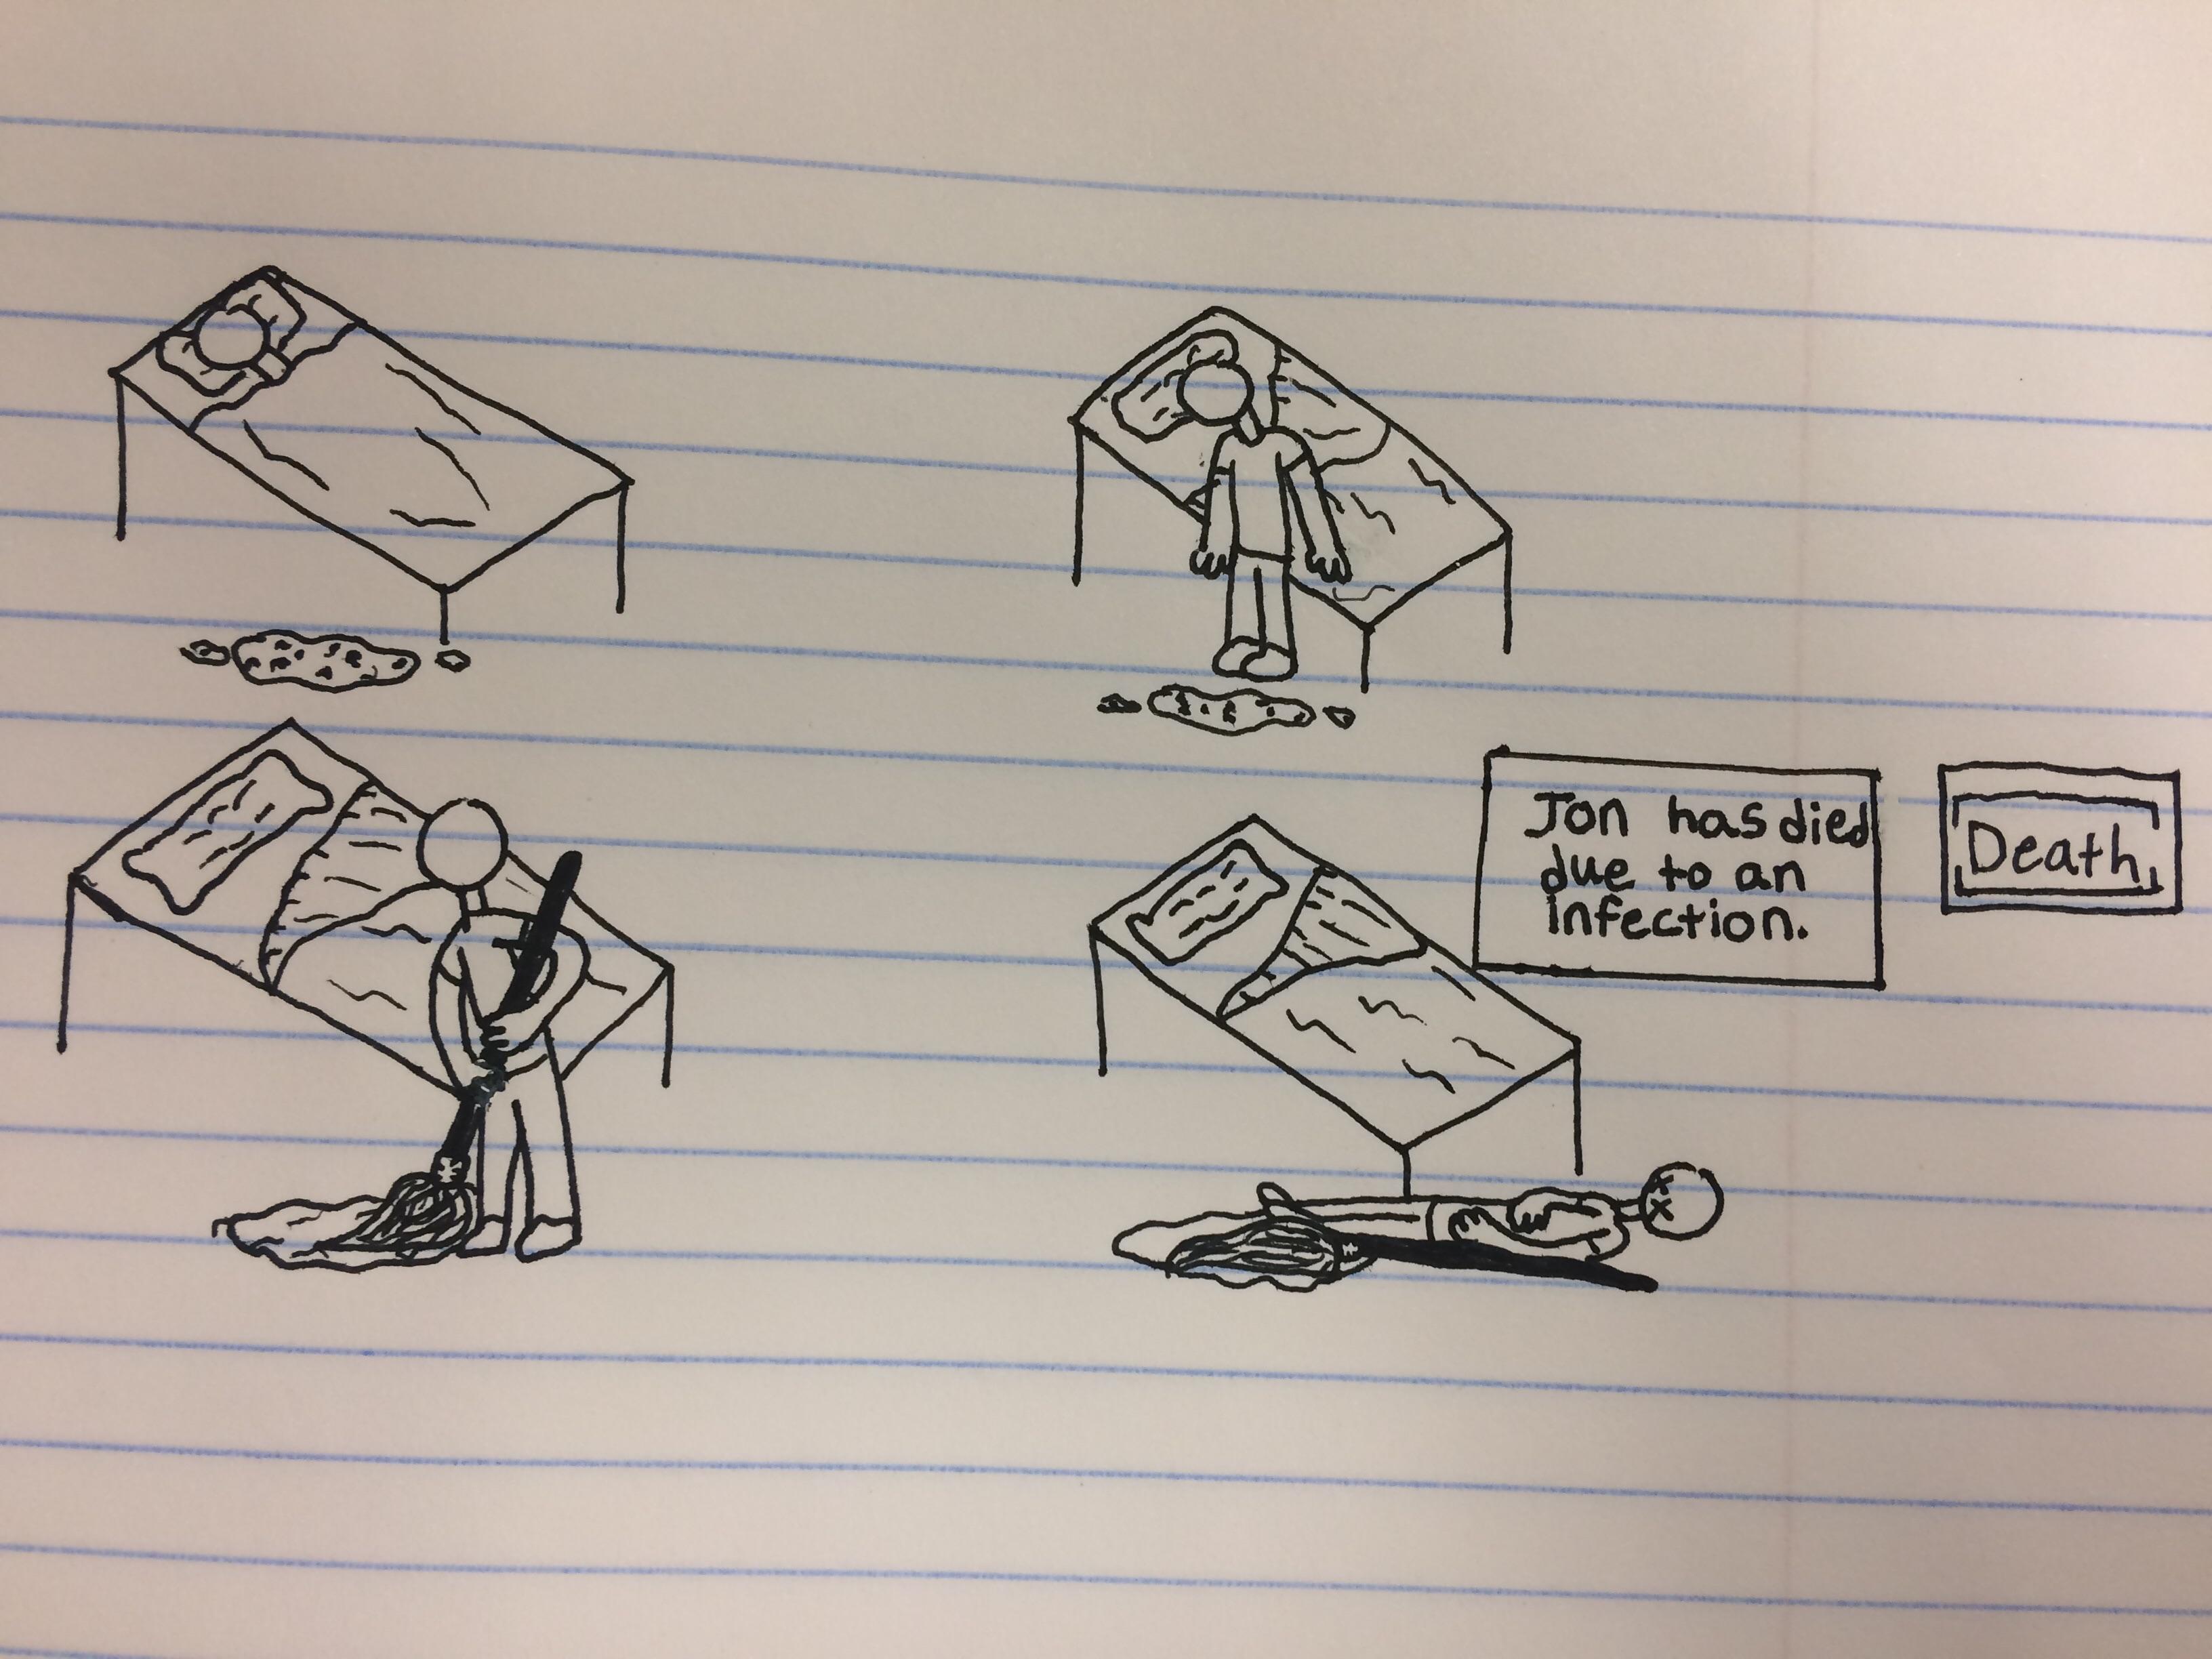 Jon has died
due to an
infection.
Death